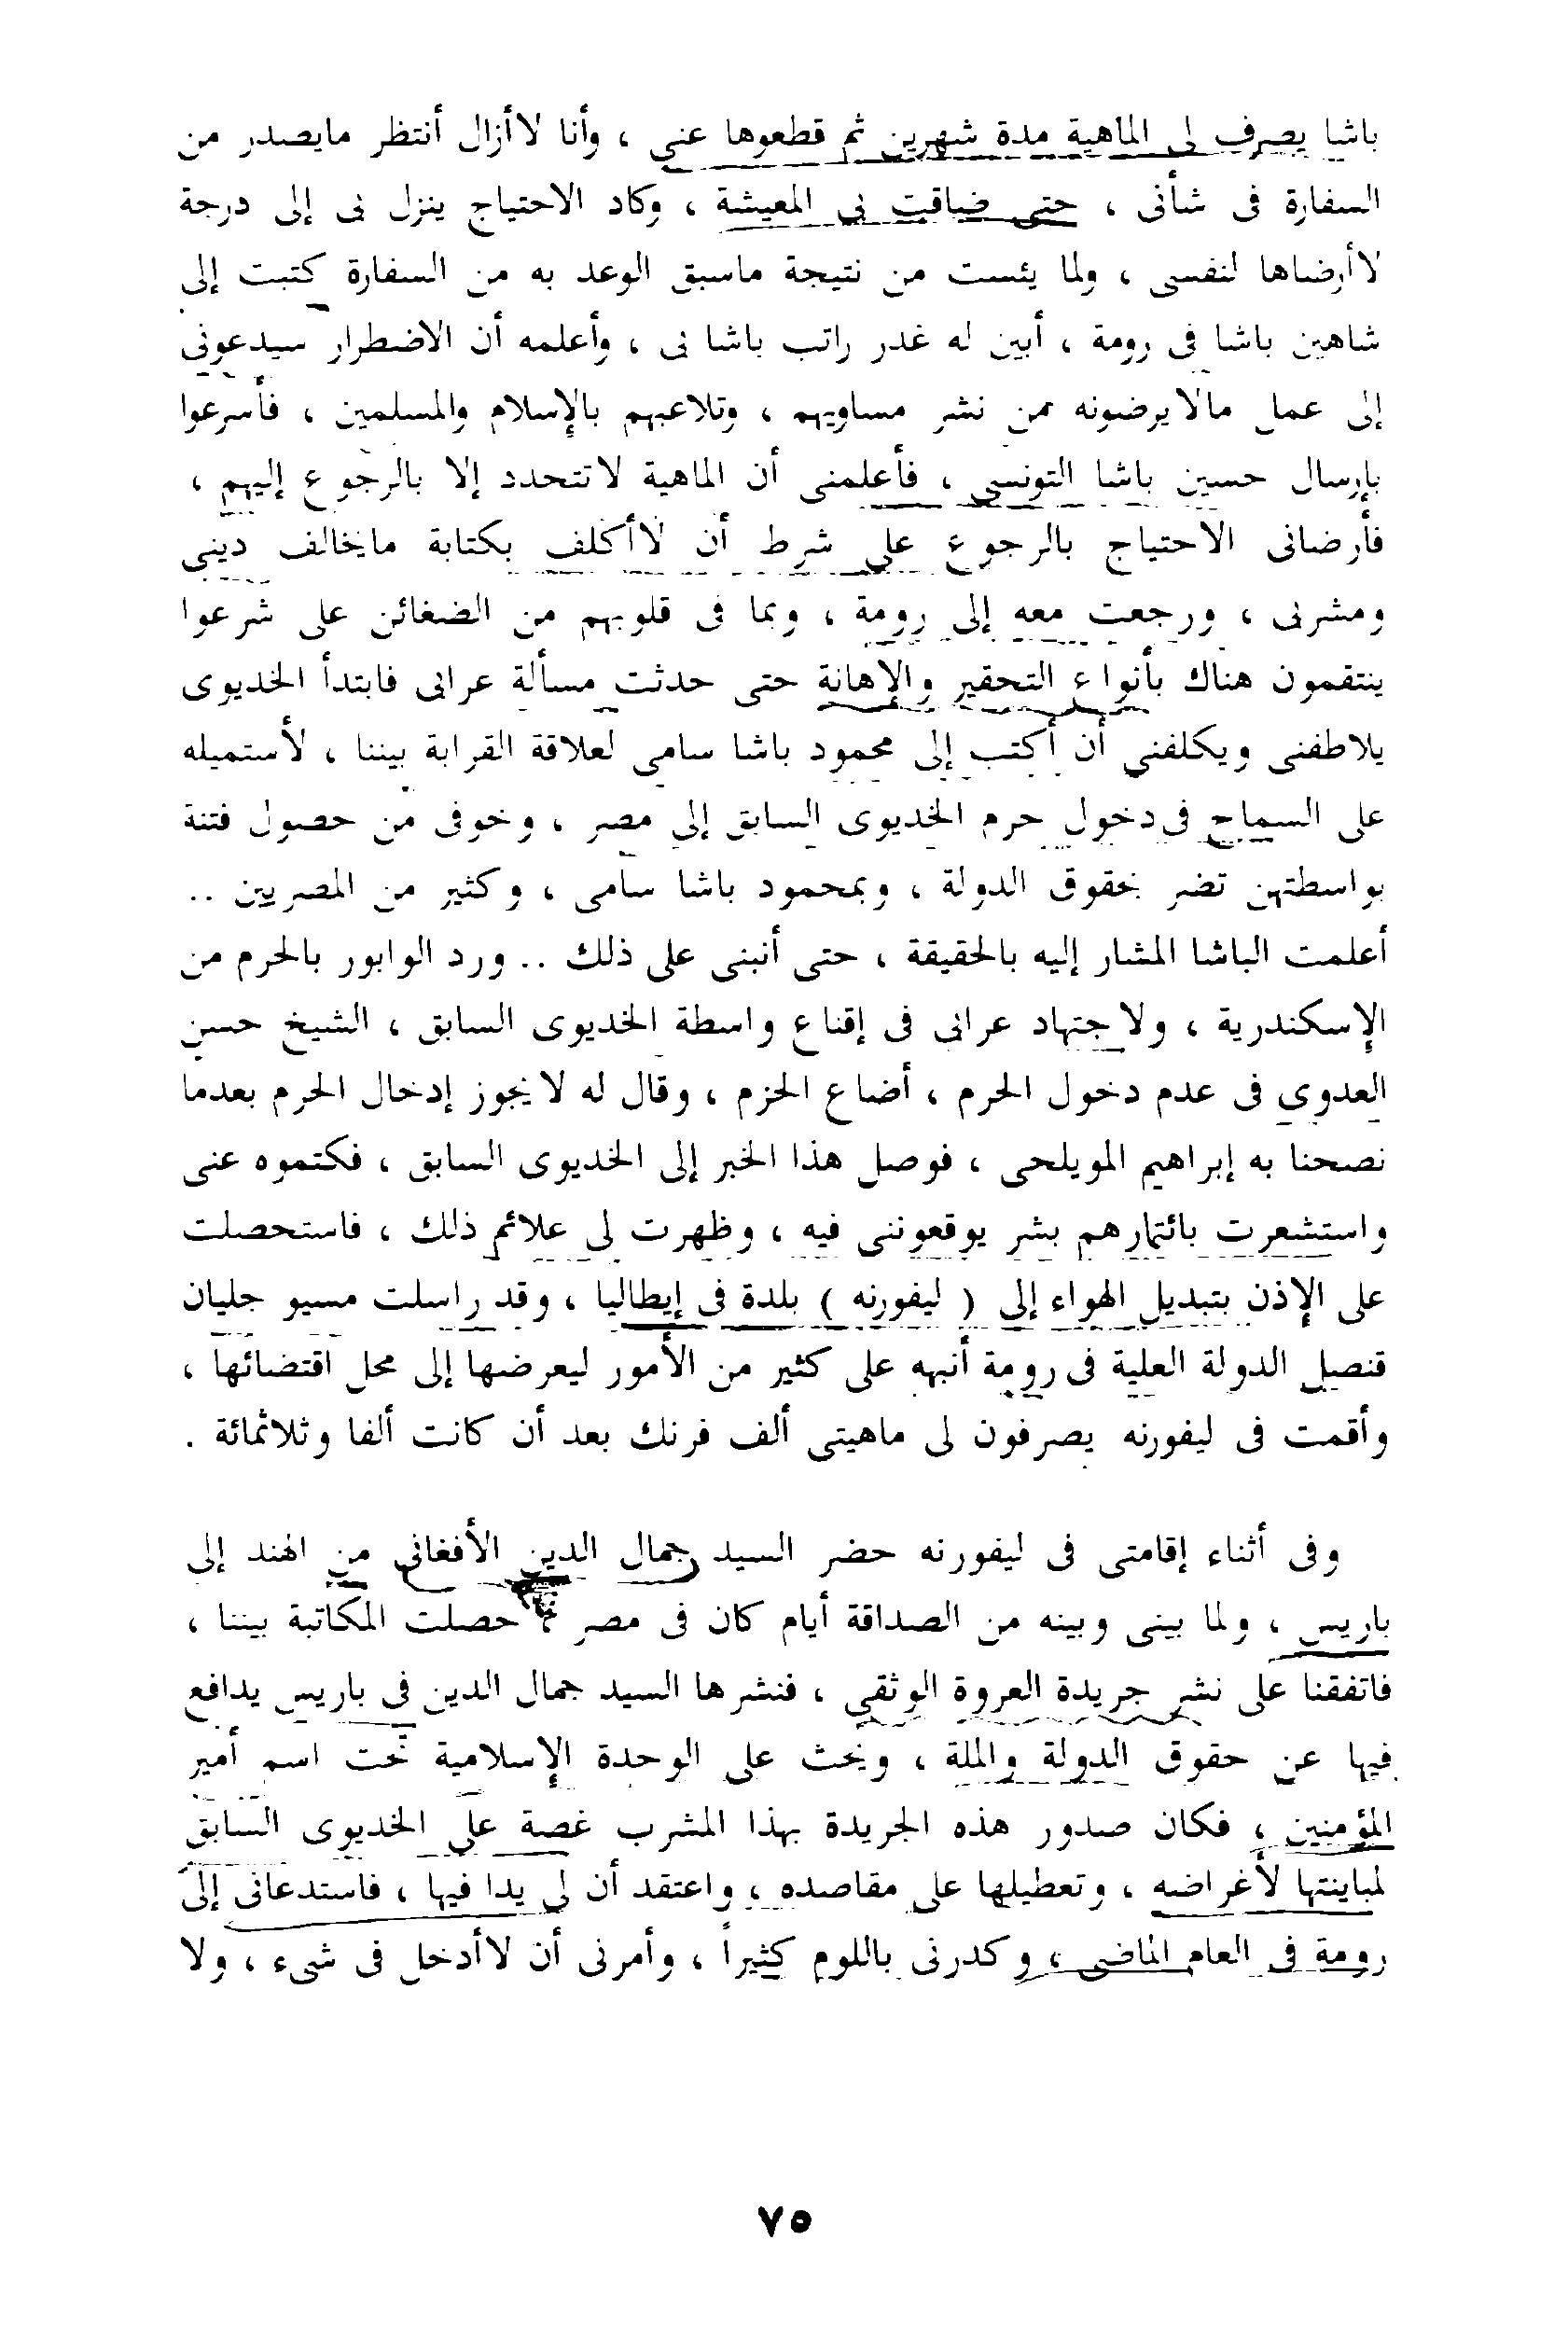 باشا يصرف لى الماهية مدة شهرين ثم قطعوها عنى ، وأنا لا أزال أنتظر مايصدر من
السفارة فى شأنى ، حتى ضاقت بى المعيشة ، وكاد الاحتياج ينزل بى إلى درجة
لا أرضاها لنفسى ، ولما يئست من نتيجة ماسبق الوعد به من السفارة كتبت إلى
شاهين باشا فى رومة ، أبين له غدر راتب باشا بى ، وأعلمه أن الاضطرار سيدعونى
إلى عمل مالا يرضونه من نشر مساويهم ، وتلاعبهم بالإسلام والمسلمين ، فأسرعوا
بإرسال حسين باشا التونسى ، فأعلمنى أن الماهية لا تتحدد إلا بالرجوع إليهم ،
فأرضانى الاحتياج بالرجوع على شرط أن لا أكلف بكتابة مايخالف دينى
ومشربى ، ورجعت معه إلى رومة ، وبما فى قلوبهم من الضغائن على شرعوا
ينتقمون هناك بأنواع التحقير والإهانة حتى حدثت مسألة عرابى فابتدأ الخديوى
يلاطفنى ويكلفنى أن أكتب إلى محمود باشا سامى لعلاقة القرابة بيننا ، لأستميله
على السماح فى دخول حرم الخديوى السابق إلى مصر ، وخوفى من حصول فتنة
بواسطتهن تضر بحقوق الدولة ، وبمحمود باشا سامى ، وكثير من المصريين ..
أعلمت الباشا المشار إليه بالحقيقة ، حتى أنبنى على ذلك .. ورد الوابور بالحرم من
الإسكندرية ، ولاجتهاد عرابى فى إقناع واسطة الخديوى السابق ، الشيخ حسن
العدوى فى عدم دخول الحرم ، أضاع الحزم ، وقال له لا يجوز إدخال الحرم بعدما
نصحنا به إبراهيم المويلحى ، فوصل هذا الخبر إلى الخديوى السابق ، فكتموه عنى
واستشعرت بائتمارهم بشر يوقعوننى فيه ، وظهرت لى علائم ذلك ، فاستحصلت
على الإذن بتبديل الهواء إلى ( ليفورنه ) بلدة فى إيطاليا ، وقد راسلت مسيو جليان
قنصل الدولة العلية فى رومة أنبهه على كثير من الأمور ليعرضها إلى محل اقتضائها ،
وأقمت فى ليفورنه يصرفون لى ماهيتى ألف فرنك بعد أن كانت ألفا وثلاثمائة .
وفى أثناء إقامتى فى ليفورنه حضر السيد جمال الدين الأفغانى من الهند إلى
باريس ، ولما بينى وبينه من الصداقة أيام كان فى مصر حصلت المكاتبة بيننا ،
فاتفقنا على نشر جريدة العروة الوثقى ، فنشرها السيد جمال الدين فى باريس يدافع
فيها عن حقوق الدولة والملة ، ويحث على الوحدة الإسلامية تحت اسم أمير
المؤمنين ، فكان صدور هذه الجريدة بهذا المشرب غصة على الخديوى السابق
لمباينتها لأغراضه ، وتعطيلها على مقاصده ، واعتقد أن لى يدا فيها ، فاستدعانى إلى
رومة فى العام الماضى ، وكدرنى باللوم كثيراً ، وأمرنى أن لا أدخل فى شىء ، ولا
٧٥